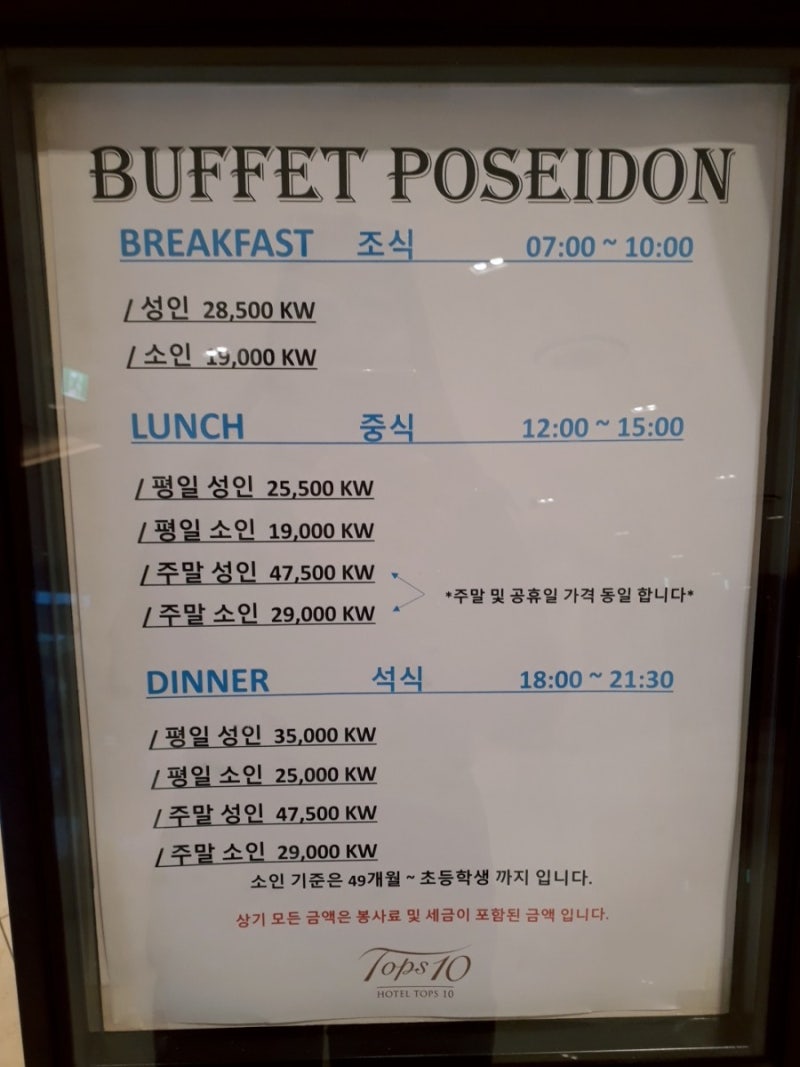 BUFFET POSEIDON
BREAKFAST 조식 07:00 ~ 10:00
/ 성인 28,500 KW
/ 소인 19,000 KW
LUNCH 중식 12:00 ~ 15:00
/ 평일 성인 25,500 KW
/ 평일 소인 19,000 KW
/ 주말 성인 47,500 KW
*주말 및 공휴일 가격 동일 합니다*
/ 주말 소인 29,000 KW
DINNER 석식 18:00 ~ 21:30
/ 평일 성인 35,000 KW
/ 평일 소인 25,000 KW
/ 주말 성인 47,500 KW
/ 주말 소인 29,000 KW
소인 기준은 49개월 ~ 초등학생 까지 입니다.
상기 모든 금액은 봉사료 및 세금이 포함된 금액 입니다.
Tops 10
HOTEL TOPS 10